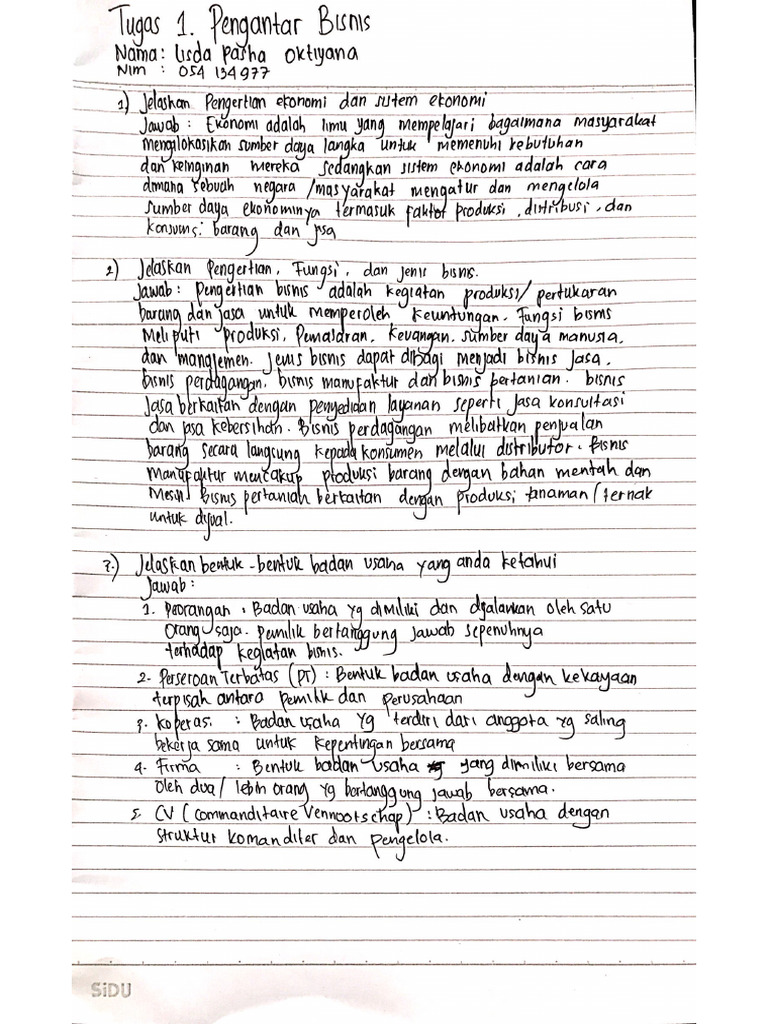 Tugas 1. Pengantar Bisnis
Nama: Lisda Pasha Oktiyana
NIM : 054134977
1) Jelaskan Pengertian ekonomi dan sistem ekonomi
Jawab : Ekonomi adalah ilmu yang mempelajari bagaimana masyarakat
mengilokasikan sumber daya langka untuk memenuhi kebutuhan
dan keinginan mereka sedangkan sistem ekonomi adalah cara
dimana sebuah negara /masyarakat mengatur dan mengelola
sumber daya ekonominya termasuk faktor produksi , distribusi , dan
konsumsi barang dan jasa
2) Jelaskan Pengertian, Fungsi, dan jenis bisnis.
Jawab : Pengertian bisnis adalah kegiatan produksi/ pertukaran
barang dan jasa untuk memperoleh keuntungan. Fungsi bisnis
Meliputi produksi, Pemasaran, keuangan, sumber daya manusia,
dan manajemen. Jenis bisnis dapat dibagi menjadi bisnis Jasa,
bisnis perdagangan, bisnis manufaktur dan bisnis pertanian. bisnis
Jasa berkaitan dengan penyediaan layanan seperti jasa konsultasi
dan jasa kebersihan. Bisnis perdagangan melibatkan penjualan
barang secara langsung kepada konsumen melalui distributor. Bisnis
Manufaktur mencakup produksi barang dengan bahan mentah dan
Mesin Bisnis pertanian berkaitan dengan produksi tanaman / ternak
untuk dijual.
3.) Jelaskan bentuk-bentuk badan usaha yang anda ketahui
Jawab :
1. Peorangan : Badan usaha yg dimiliki dan dijalankan oleh satu
Orang saja. pemilik bertanggung jawab sepenuhnya
terhadap kegiatan bisnis.
2. Perseroan Terbatas (PT) : Bentuk badan usaha dengan kekayaan
terpisah antara pemilik dan perusahaan
3. Koperasi : Badan usaha yg terdiri dari anggota yg saling
bekerja sama untuk kepentingan bersama
4. Firma : Bentuk badan usaha yang dimiliki bersama
oleh dua/ lebih orang yg bertanggung jawab bersama.
5. CV (Commanditaire Vennootschap) : Badan usaha dengan
struktur komanditer dan pengelola.
SiDU